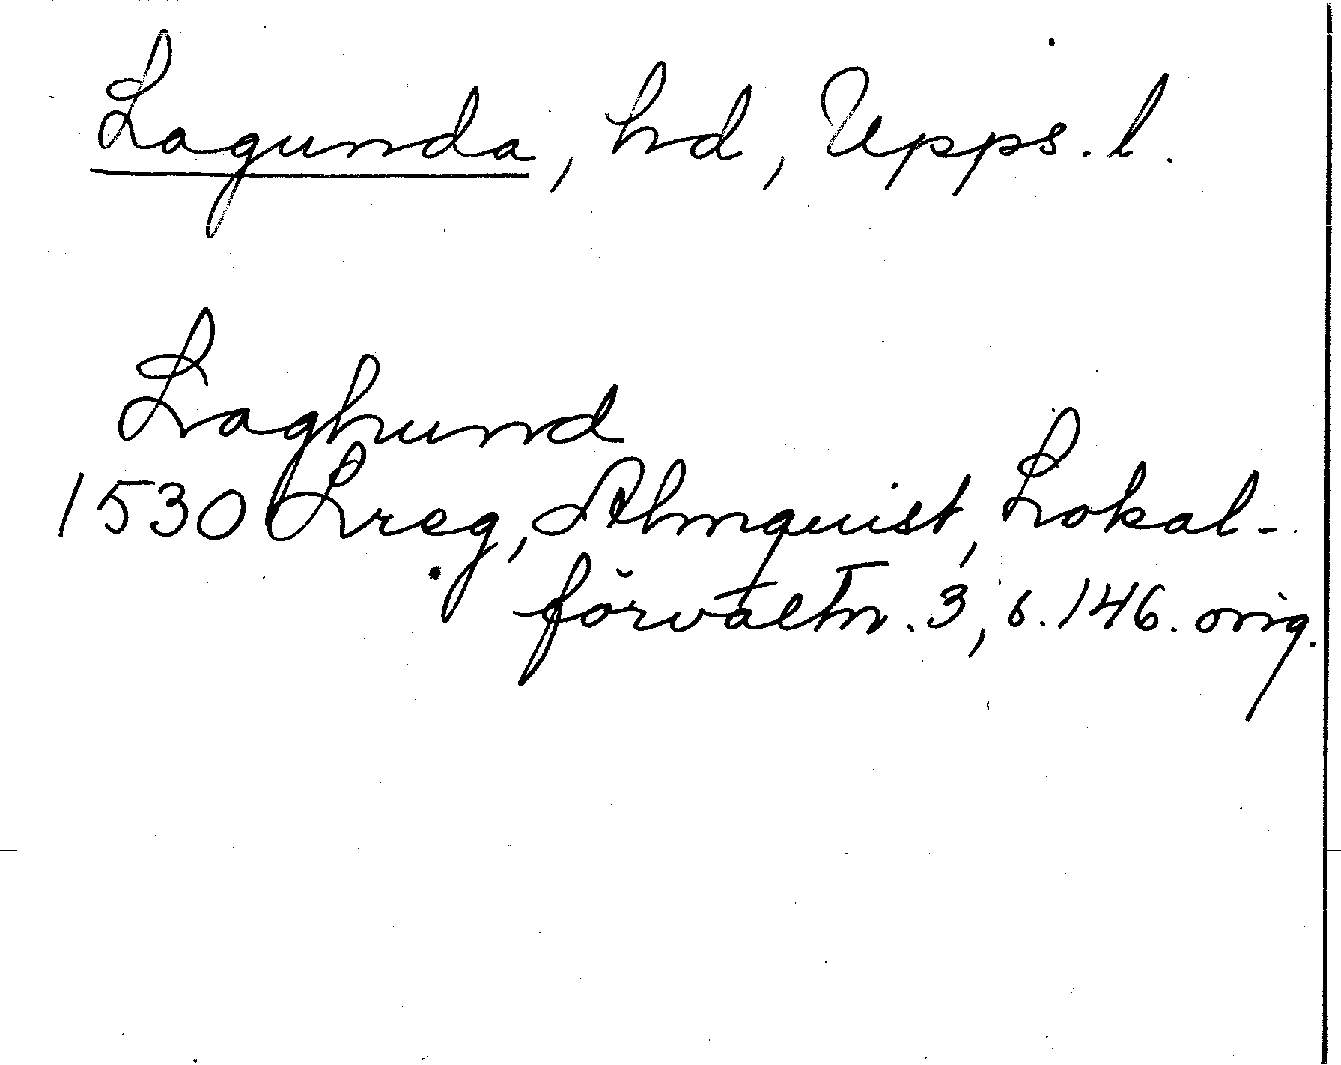 Lagunda, hd, Upps. l.
Laghund
1530 Lreg, Almquist, Lokal-
förvaltn. 3, s. 146. orig.